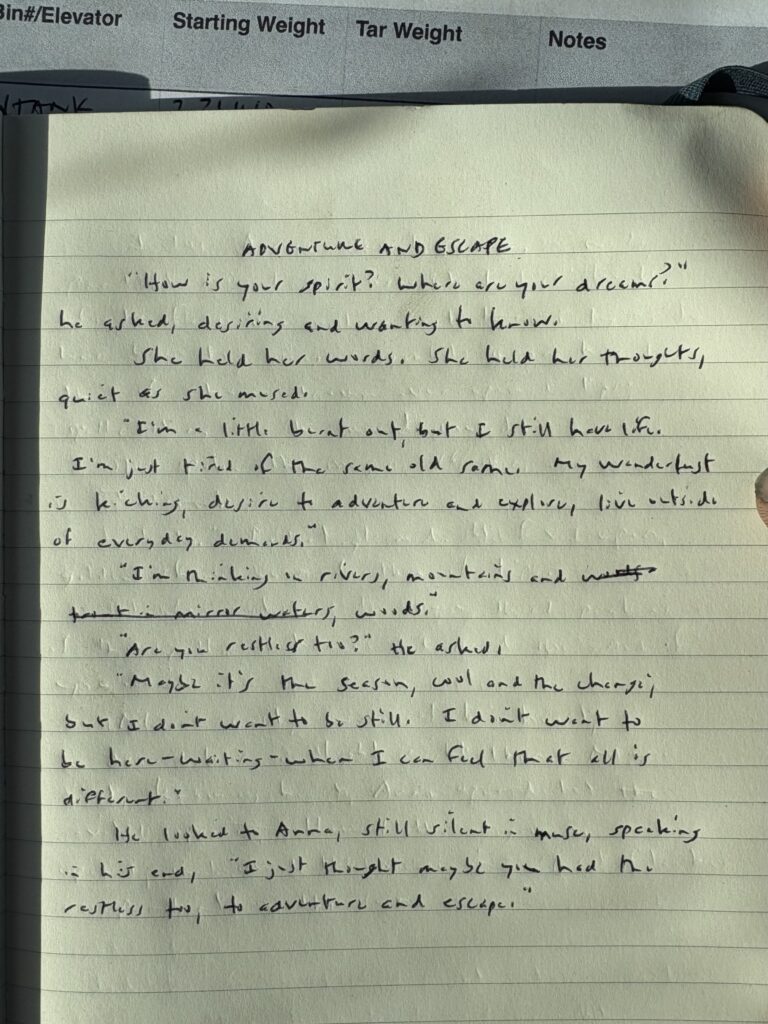 Bin#/Elevator Starting Weight Tar Weight Notes
ADVENTURE AND ESCAPE
"How is your spirit? Where are your dreams?"
he asked, desiring and wanting to know.
She held her words. She held her thoughts,
quiet as she mused.
"I'm a little burnt out, but I still have life.
I'm just tired of the same old same. My wanderlust
is kicking, desire to adventure and explore, live outside
of everyday demands."
"I'm thinking in rivers, mountains and
mirror waters, woods."
"Are you restless too?" He asked.
"Maybe it's the season, cool and the change,
but I don't want to be still. I don't want to
be here-waiting-when I can feel that all is
different."
He looked to Anna, still silent in muse, speaking
in his end, "I just thought maybe you had the
restless too, to adventure and escape."